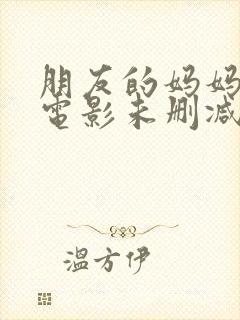 朋友的妈妈
电影未删减
温方伊